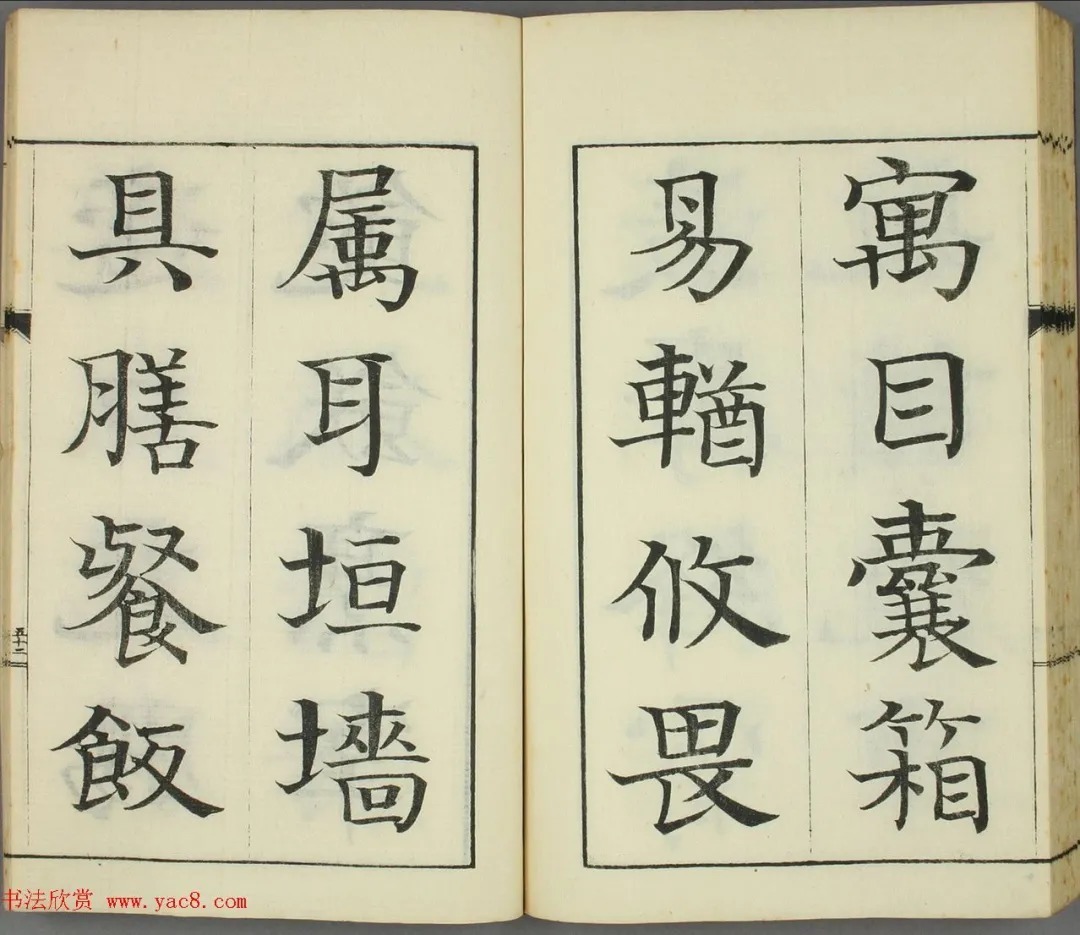 寓目囊箱
易輶攸畏
属耳垣墙
具膳餐飯
五十二
书法欣赏 www.yac8.com